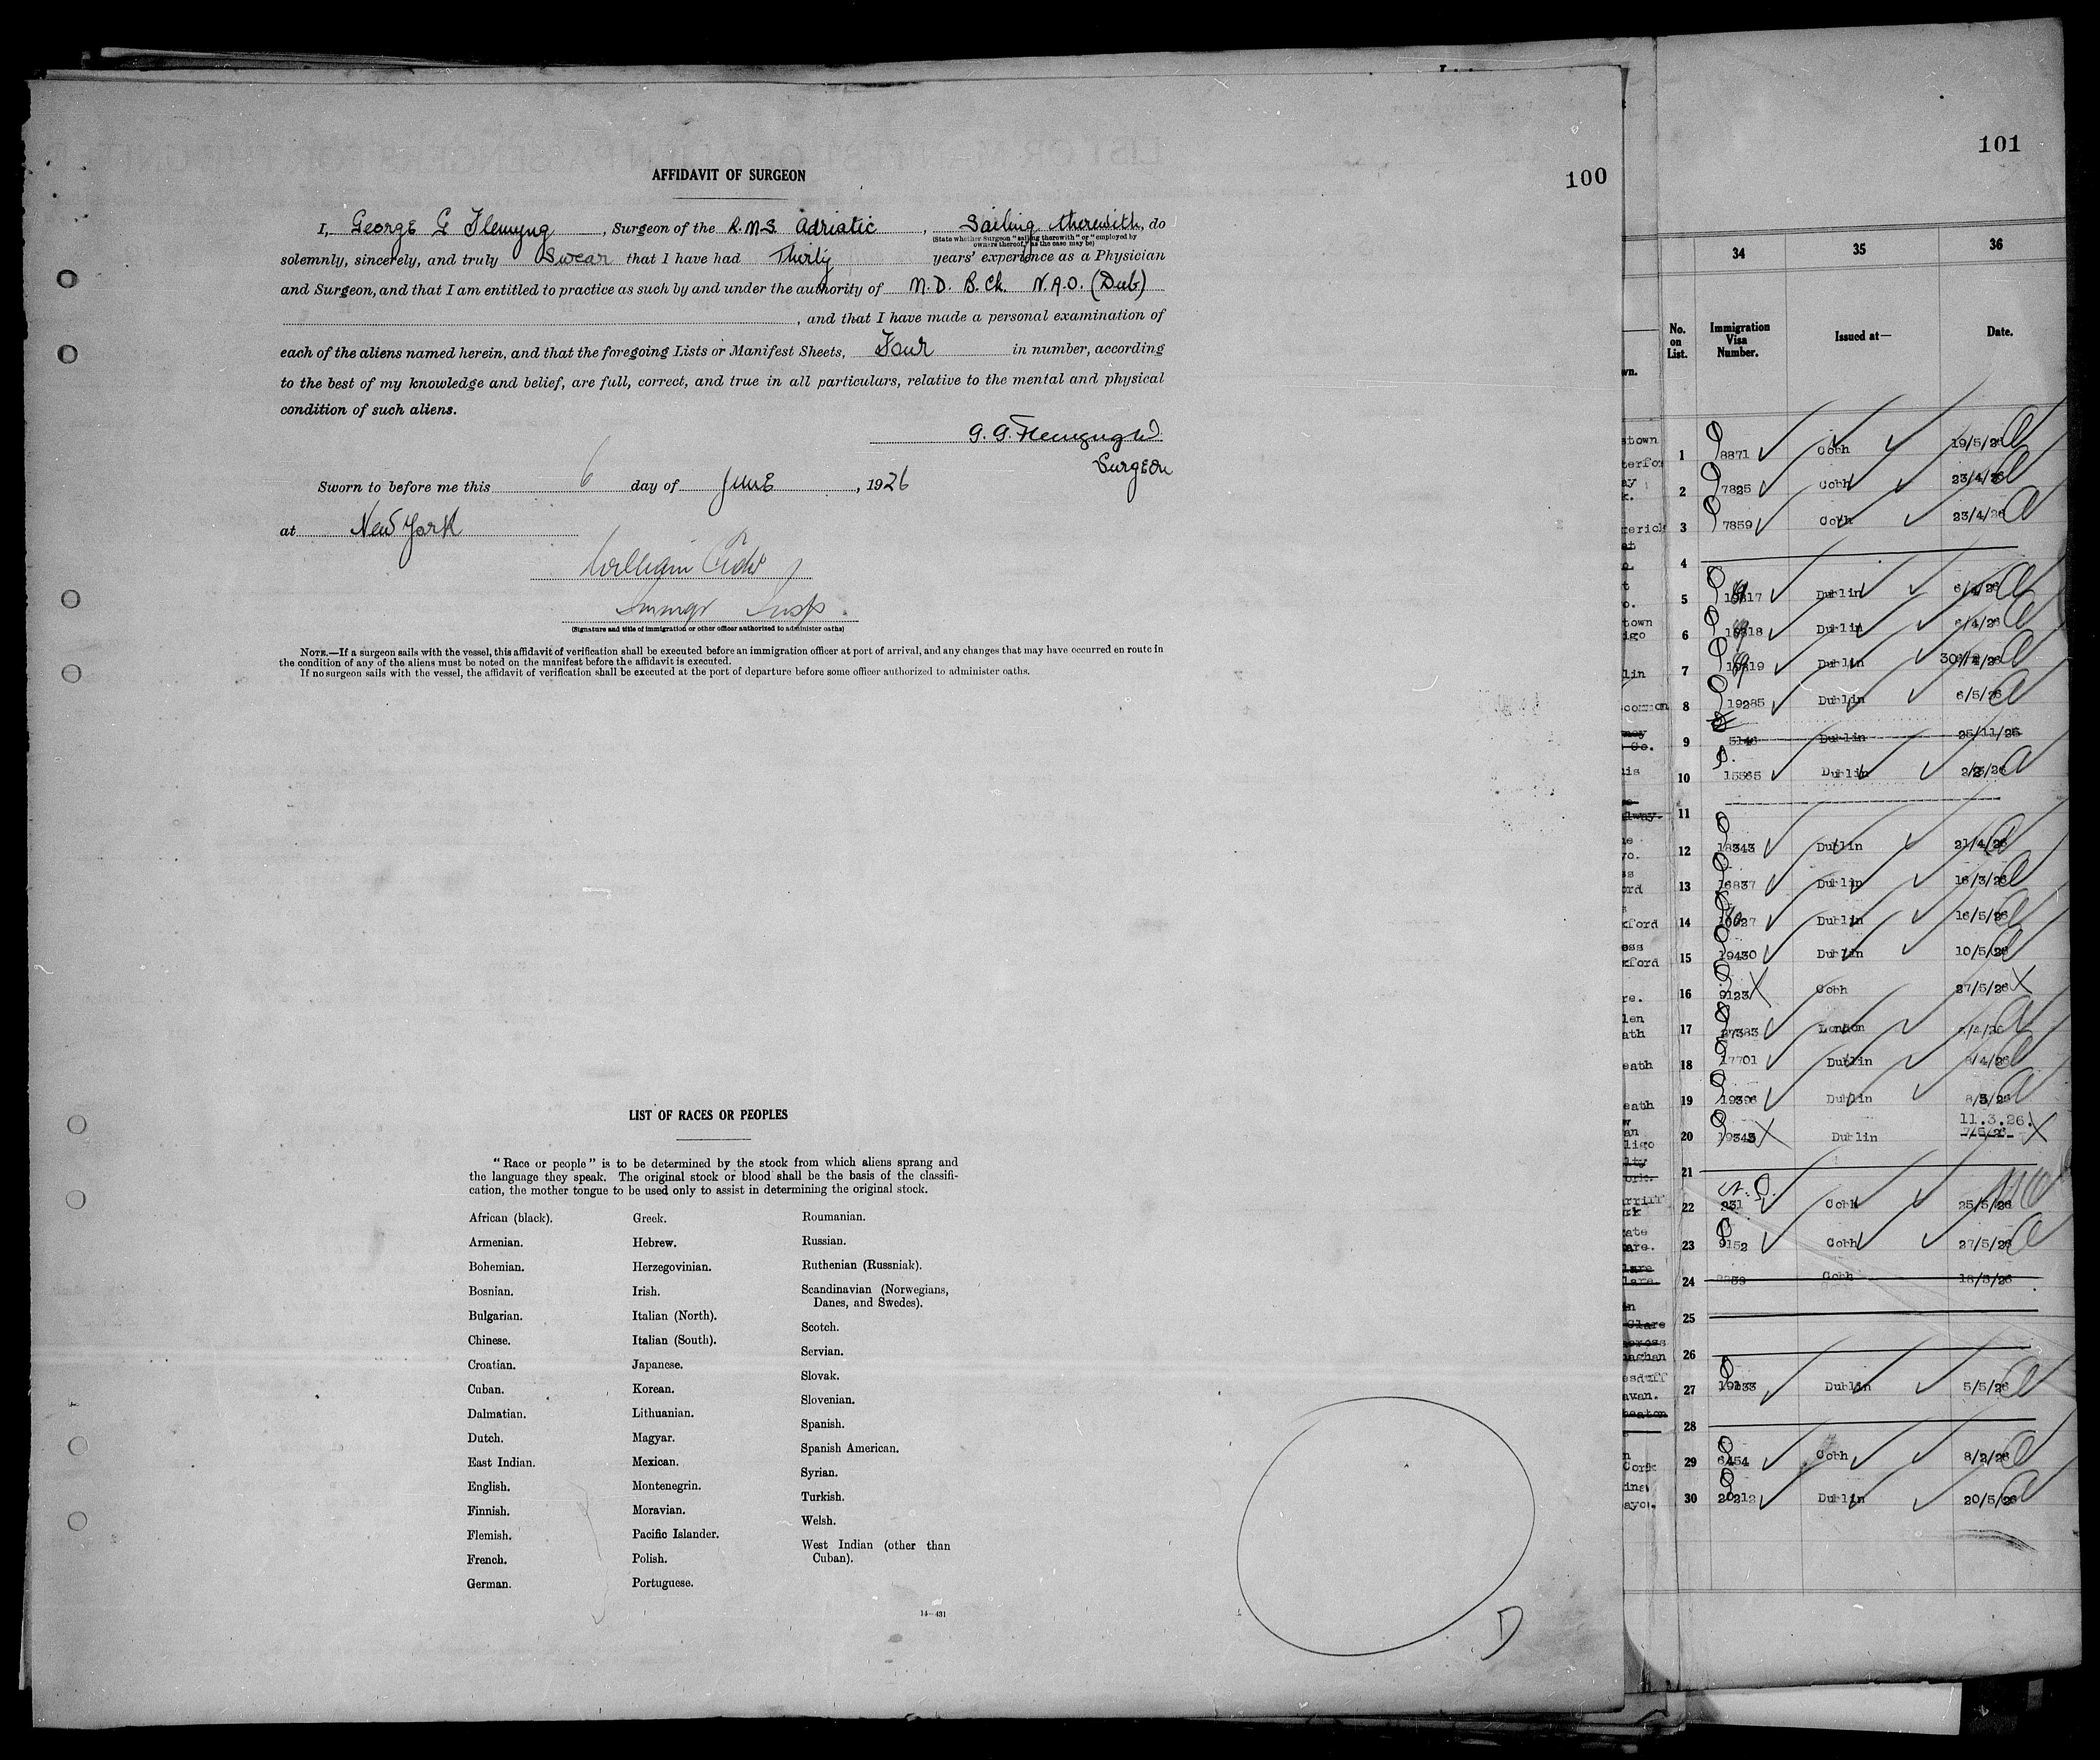 AFFIDAVIT OF SURGEON
100
I, George G Flemyng, Surgeon of the R.M.S. Adriatic, Sailing therewith, do
(State whether Surgeon "sailing therewith" or "employed by
owners thereof," as the case may be)
solemnly, sincerely, and truly Swear that I have had Thirty years' experience as a Physician
and Surgeon, and that I am entitled to practice as such by and under the authority of M.D. B.Ch. N.A.O. (Dub)
, and that I have made a personal examination of
each of the aliens named herein, and that the foregoing Lists or Manifest Sheets, Four in number, according
to the best of my knowledge and belief, are full, correct, and true in all particulars, relative to the mental and physical
condition of such aliens.
G. G. Flemyng
Surgeon
Sworn to before me this 6 day of June, 1926
at New York
William
Immgr Insp.
(Signature and title of immigration or other officer authorized to administer oaths)
NOTE.—If a surgeon sails with the vessel, this affidavit of verification shall be executed before an immigration officer at port of arrival, and any changes that may have occurred en route in
the condition of any of the aliens must be noted on the manifest before the affidavit is executed.
If no surgeon sails with the vessel, the affidavit of verification shall be executed at the port of departure before some officer authorized to administer oaths.
LIST OF RACES OR PEOPLES
"Race or people" is to be determined by the stock from which aliens sprang and
the language they speak. The original stock or blood shall be the basis of the classifi-
cation, the mother tongue to be used only to assist in determining the original stock.
African (black).
Armenian.
Bohemian.
Bosnian.
Bulgarian.
Chinese.
Croatian.
Cuban.
Dalmatian.
Dutch.
East Indian.
English.
Finnish.
Flemish.
French.
German.
Greek.
Hebrew.
Herzegovinian.
Irish.
Italian (North).
Italian (South).
Japanese.
Korean.
Lithuanian.
Magyar.
Mexican.
Montenegrin.
Moravian.
Pacific Islander.
Polish.
Portuguese.
Roumanian.
Russian.
Ruthenian (Russniak).
Scandinavian (Norwegians,
Danes, and Swedes).
Scotch.
Servian.
Slovak.
Slovenian.
Spanish.
Spanish American.
Syrian.
Turkish.
Welsh.
West Indian (other than
Cuban).
14—431
D
101
34 35 36
No. on List. Immigration Visa Number. Issued at— Date.
1 8871 Cobh 19/5/26
2 7825 Cobh 23/4/26
3 7859 Cobh 23/4/26
4
5 Dublin 6/4/26
6 Dublin 6/4/26
7 Dublin
8 19285 Dublin 6/5/26
9 5146 Dublin 25/11/25
10 15565 Dublin 2/2/26
11
12 18343 Dublin 21/4/26
13 16837 Dublin 16/3/26
14 Dublin 16/5/26
15 19430 Dublin 10/5/26
16 9123 Cobh 27/5/26
17 27383 London /4/26
18 17701 Dublin /4/26
19 19396 Dublin 8/5/26
11.3.26.
20 19343 Dublin 7/5/26
21
22 231 Cobh 25/5/26
23 9152 Cobh 27/5/26
24 Cobh 18/5/26
25
26
27 Dublin 5/5/26
28
29 6454 Cobh 8/2/26
30 20212 Dublin 20/5/26